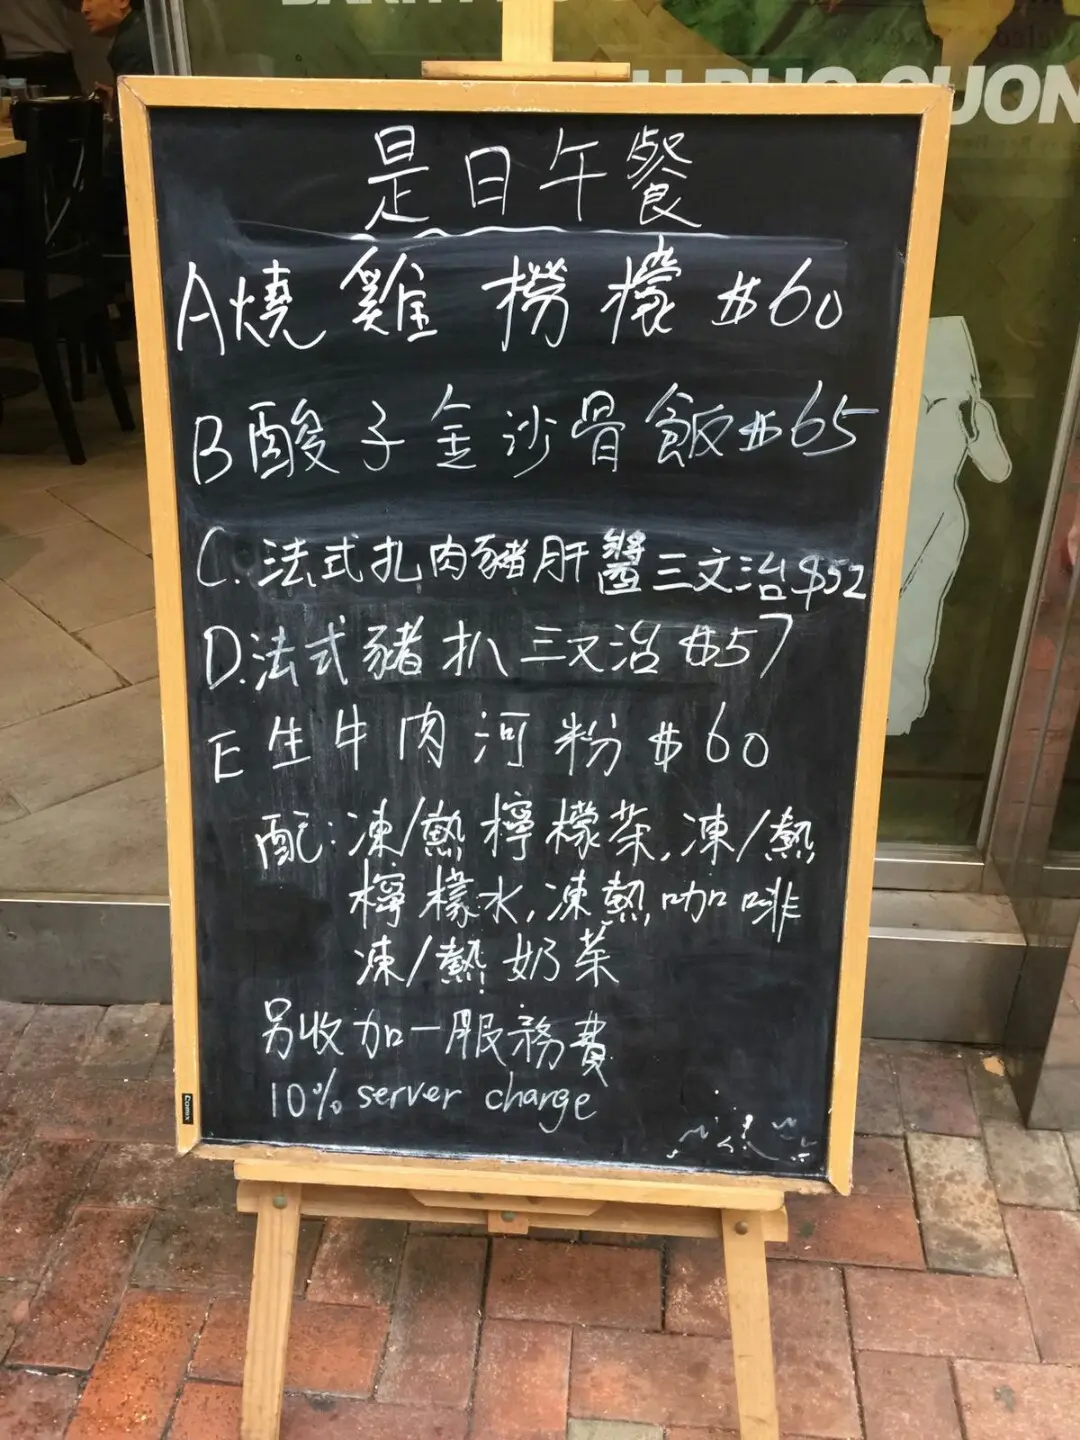 BANH MI PHU QUON
是日午餐
A燒雞撈檬 $60
B酸子金沙骨飯 $65
C.法式扎肉豬肝醬三文治 $52
D.法式豬扒三文治 $57
E生牛肉河粉 $60
配:凍/熱檸檬茶,凍/熱
檸檬水,凍熱咖啡
凍/熱奶茶
另收加一服務費
10% server charge
Comix